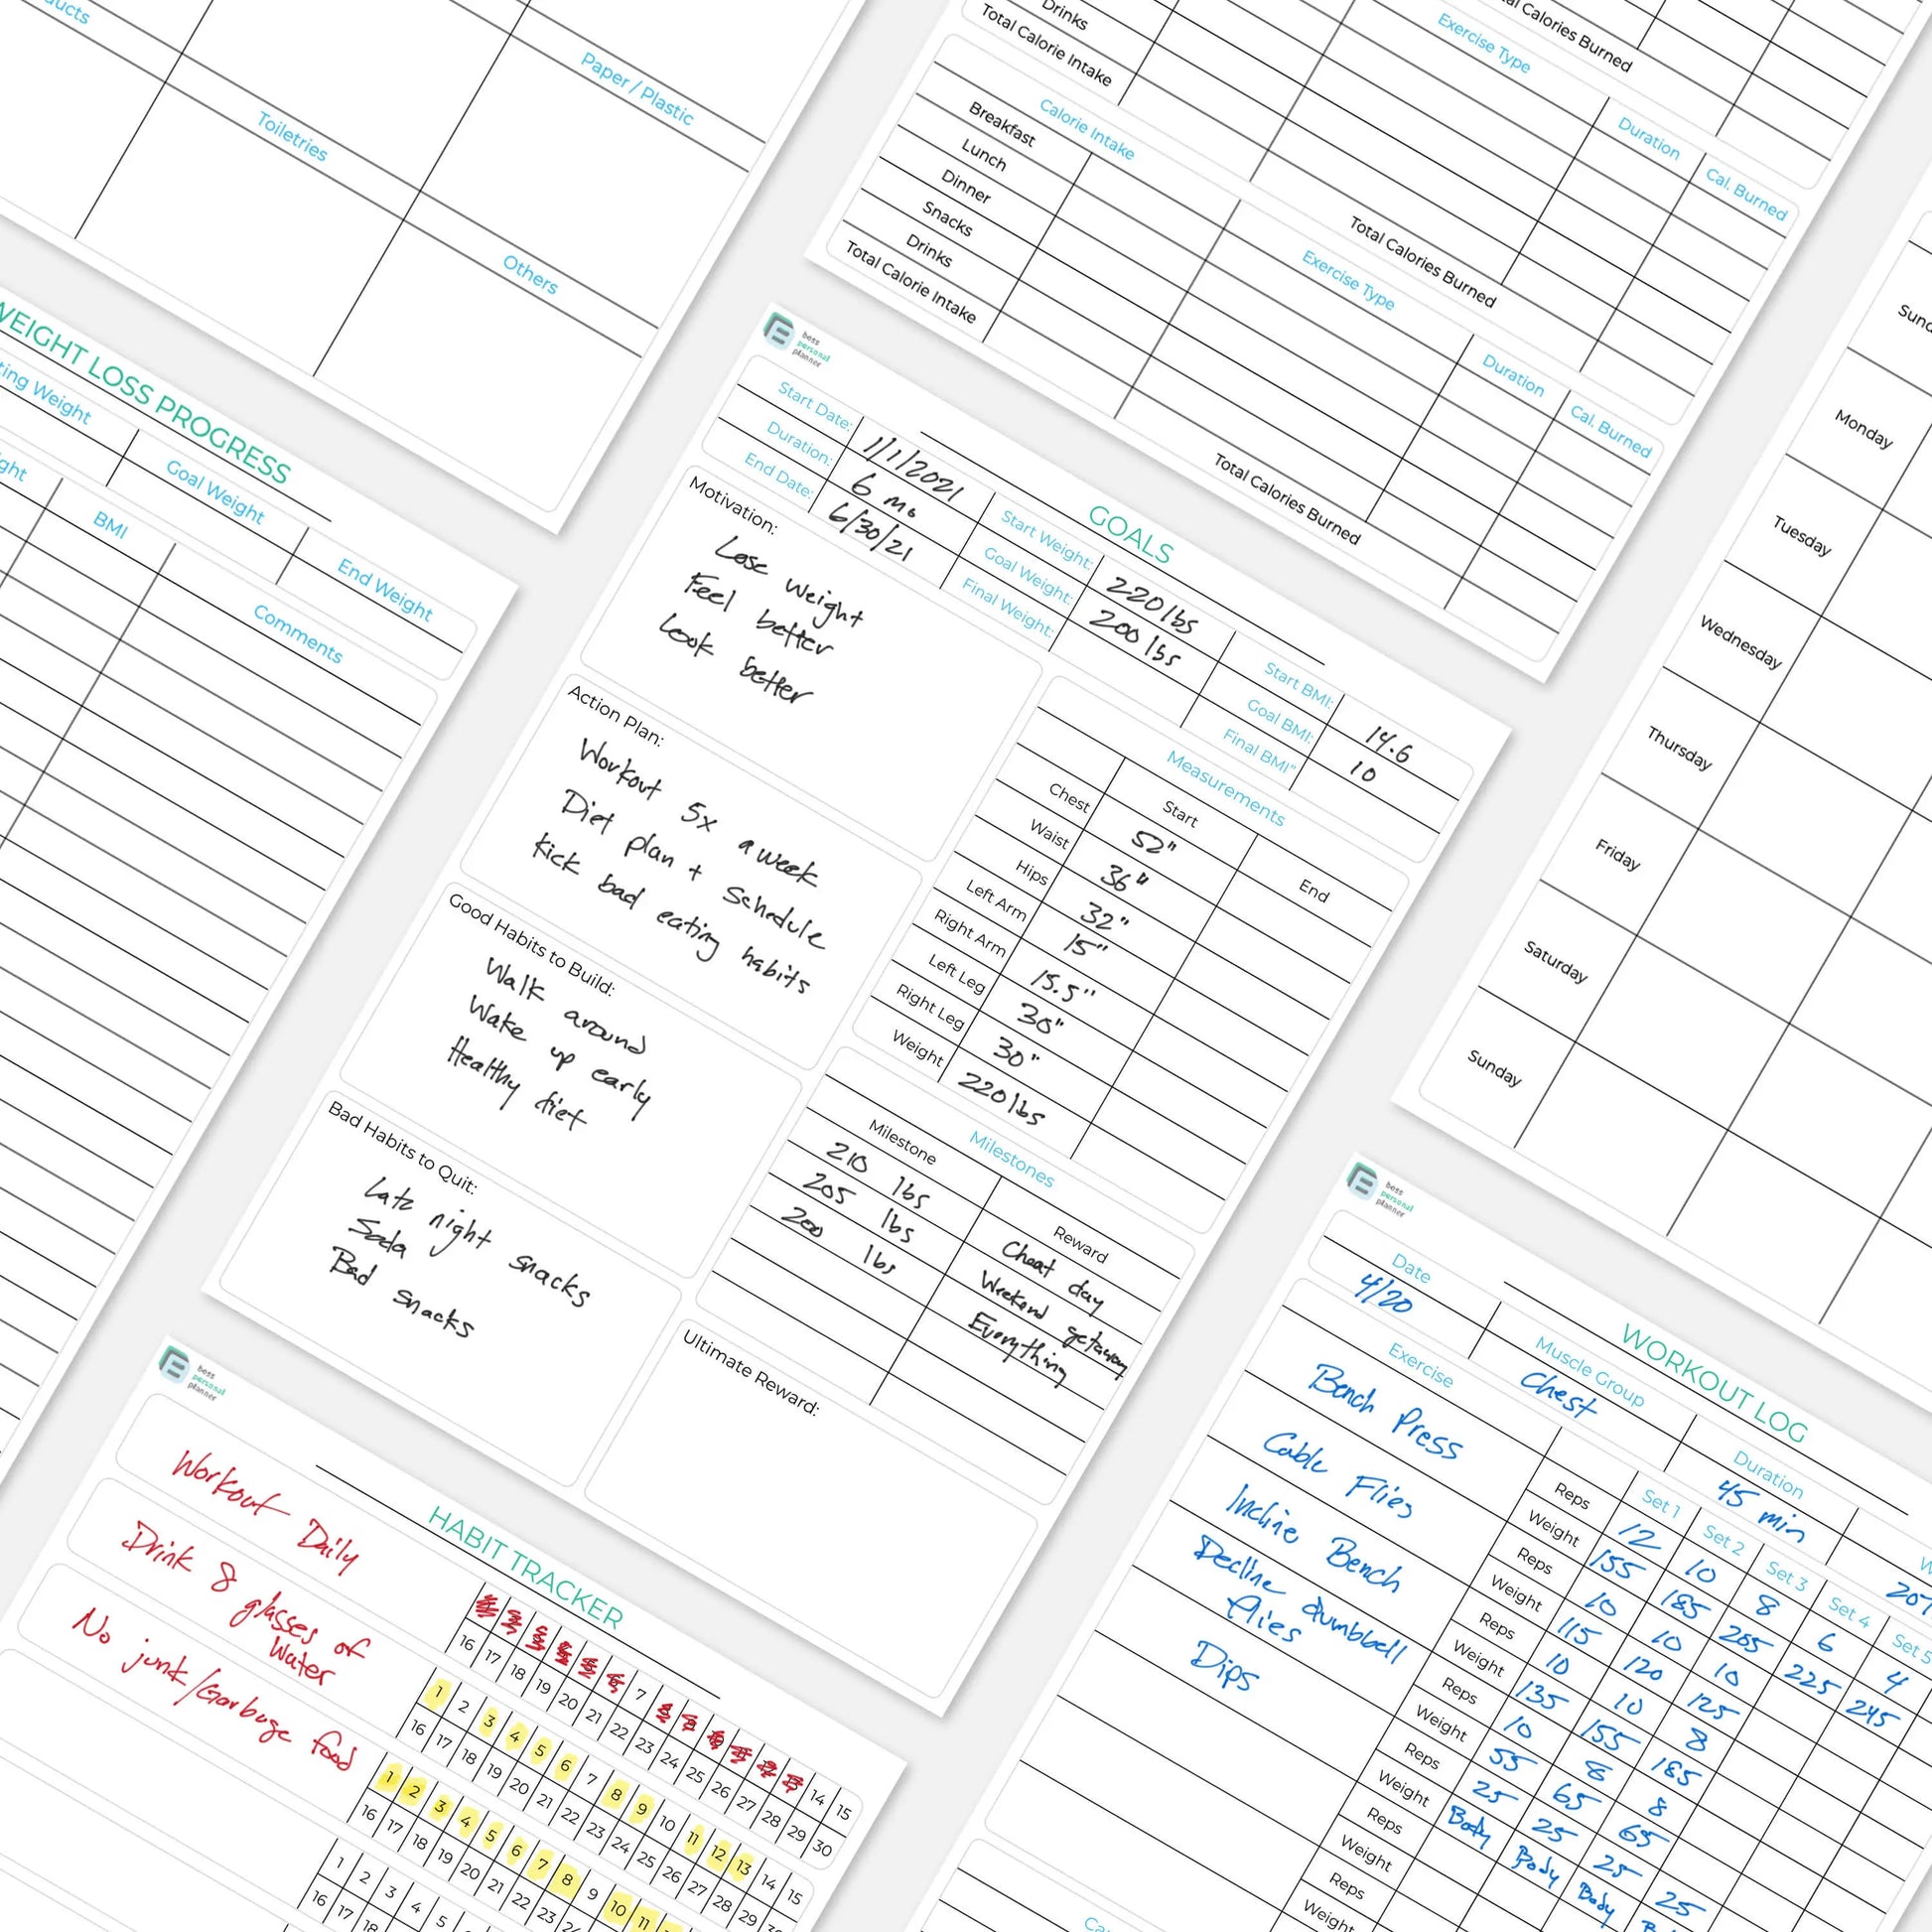 Paper / Plastic
Toiletries
Others
Drinks
Total Calorie Intake
Exercise Type
Total Calories Burned
Duration
Cal. Burned
Calorie Intake
Breakfast
Lunch
Dinner
Snacks
Drinks
Total Calorie Intake
Exercise Type
Total Calories Burned
Duration
Cal. Burned
Total Calories Burned
Monday
Tuesday
Wednesday
Thursday
Friday
Saturday
Sunday
WEIGHT LOSS PROGRESS
Goal Weight
End Weight
BMI
Comments
boss
personal
planner
GOALS
Start Date: 1/1/2021
Duration: 6 mo
End Date: 6/30/21
Start Weight: 220 lbs
Goal Weight: 200 lbs
Final Weight:
Start BMI: 14.6
Goal BMI: 10
Final BMI"
Motivation:
Lose weight
Feel better
Look better
Action Plan:
Workout 5x a week
Diet plan + Schedule
Kick bad eating habits
Good Habits to Build:
Walk around
Wake up early
Healthy diet
Bad Habits to Quit:
Late night snacks
Soda
Bad snacks
Measurements
Start End
Chest 52"
Waist 36"
Hips 32"
Left Arm 15"
Right Arm 15.5"
Left Leg 30"
Right Leg 30"
Weight 220 lbs
Milestones
Milestone Reward
210 lbs Cheat day
205 lbs Weekend getaway
200 lbs Everything
Ultimate Reward:
boss
personal
planner
HABIT TRACKER
Workout Daily
7 14 15
16 17 18 19 20 21 22 23 24 25 26 27 28 29 30
Drink 8 glasses of
Water
1 2 3 4 5 6 7 8 9 10 11 12 13 14 15
16 17 18 19 20 21 22 23 24 25 26 27 28 29
No junk/Garbage food
1 2 3 4 5 6 7 8 9 10 11
16 17 18 19 20 21 22 23
1 2 3 4 5
16 17 18
boss
personal
planner
WORKOUT LOG
Date Muscle Group Duration
4/20 Chest 45 min
Exercise Set 1 Set 2 Set 3 Set 4 Set 5
Bench Press
Reps 12 10 8 6 4
Weight 155 185 205 225 245
Cable Flies
Reps 10 10 10
Weight 115 120 125
Incline Bench
Reps 10 10 8
Weight 135 155 185
Decline dumbbell
flies
Reps 10 8 8
Weight 55 65 65
Dips
Reps 25 25 25 25
Weight Body Body Body
Reps
Weight
Reps
Weight